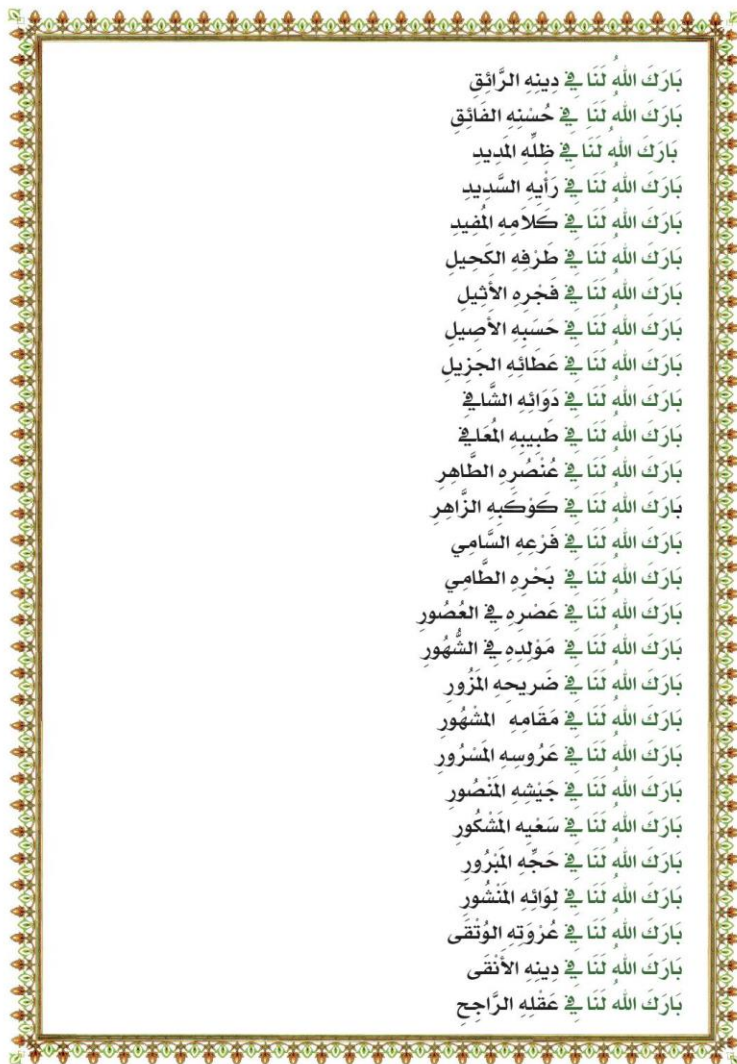 بَارَكَ اللهُ لَنَا فِي دِينِهِ الرَّائِقِ
بَارَكَ اللهُ لَنَا فِي حُسْنِهِ الفَائِقِ
بَارَكَ اللهُ لَنَا فِي ظِلِّهِ المَدِيدِ
بَارَكَ اللهُ لَنَا فِي رَأْيِهِ السَّدِيدِ
بَارَكَ اللهُ لَنَا فِي كَلاَمِهِ المُفِيدِ
بَارَكَ اللهُ لَنَا فِي طَرْفِهِ الكَحِيلِ
بَارَكَ اللهُ لَنَا فِي فَجْرِهِ الأَثِيلِ
بَارَكَ اللهُ لَنَا فِي حَسَبِهِ الأَصِيلِ
بَارَكَ اللهُ لَنَا فِي عَطَائِهِ الجَزِيلِ
بَارَكَ اللهُ لَنَا فِي دَوَائِهِ الشَّافِي
بَارَكَ اللهُ لَنَا فِي طَبِيبِهِ المُعَافِي
بَارَكَ اللهُ لَنَا فِي عُنْصُرِهِ الطَّاهِرِ
بَارَكَ اللهُ لَنَا فِي كَوْكَبِهِ الزَّاهِرِ
بَارَكَ اللهُ لَنَا فِي فَرْعِهِ السَّامِي
بَارَكَ اللهُ لَنَا فِي بَحْرِهِ الطَّامِي
بَارَكَ اللهُ لَنَا فِي عَصْرِهِ فِي العُصُورِ
بَارَكَ اللهُ لَنَا فِي مَوْلِدِهِ فِي الشُّهُورِ
بَارَكَ اللهُ لَنَا فِي ضَرِيحِهِ المَزُورِ
بَارَكَ اللهُ لَنَا فِي مَقَامِهِ المَشْهُورِ
بَارَكَ اللهُ لَنَا فِي عَرُوسِهِ المَسْرُورِ
بَارَكَ اللهُ لَنَا فِي جَيْشِهِ المَنْصُورِ
بَارَكَ اللهُ لَنَا فِي سَعْيِهِ المَشْكُورِ
بَارَكَ اللهُ لَنَا فِي حَجِّهِ المَبْرُورِ
بَارَكَ اللهُ لَنَا فِي لِوَائِهِ المَنْشُورِ
بَارَكَ اللهُ لَنَا فِي عُرْوَتِهِ الوُثْقَى
بَارَكَ اللهُ لَنَا فِي دِينِهِ الأَنْقَى
بَارَكَ اللهُ لَنَا فِي عَقْلِهِ الرَّاجِحِ